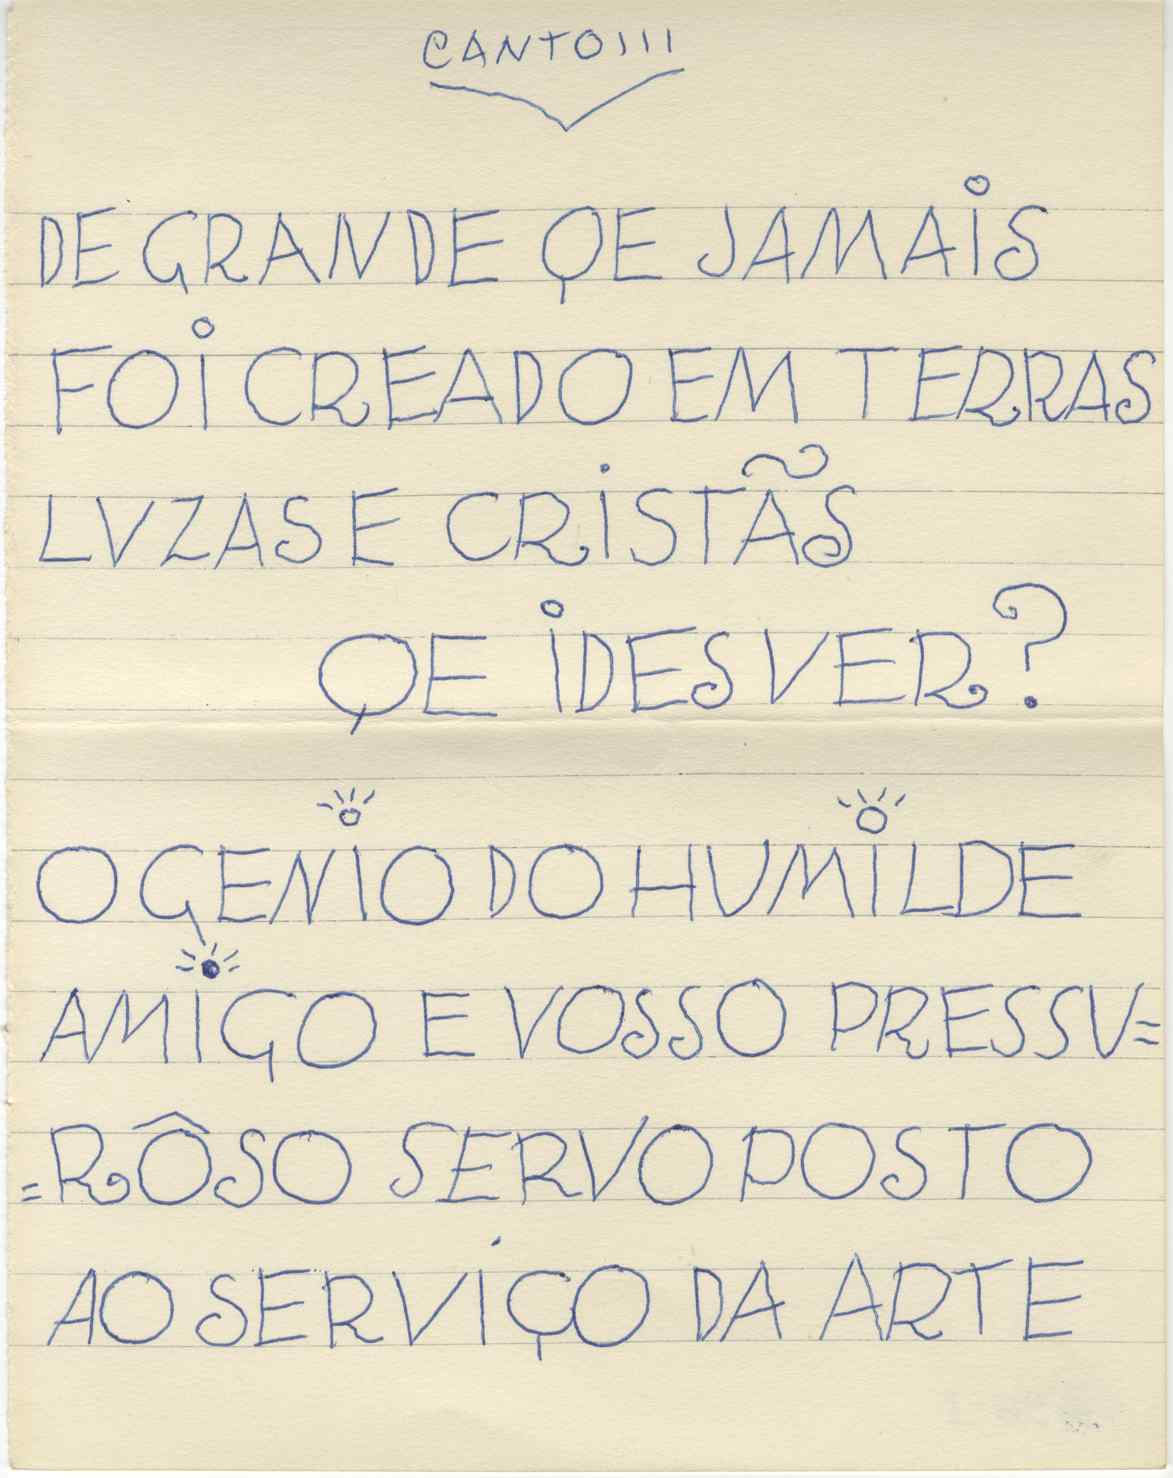 CANTO III
DE GRANDE QE JAMAIS
FOI CREADO EM TERRAS
LVZAS E CRISTÃS
QE IDES VER?
O GENIO DO HUMILDE
AMIGO E VOSSO PRESSV=
=RÔSO SERVO POSTO
AO SERVIÇO DA ARTE